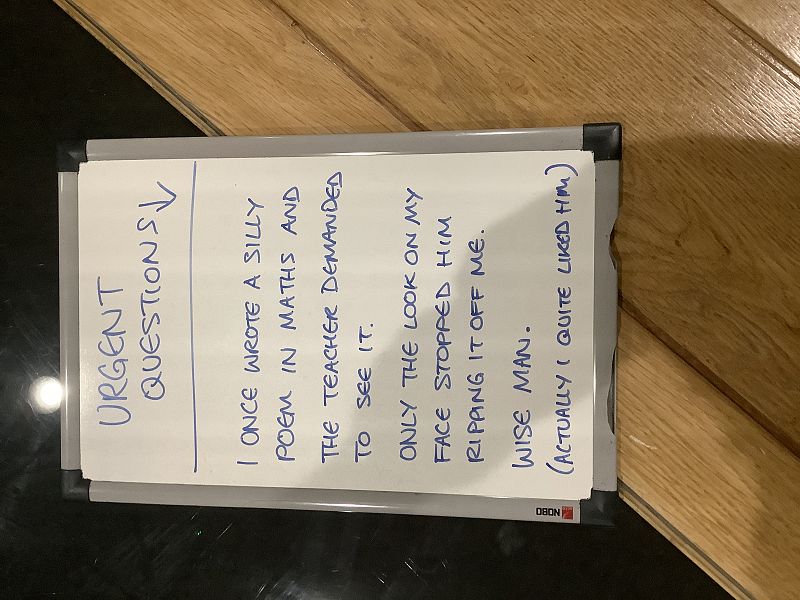 URGENT
QUESTIONS ↓
I ONCE WROTE A SILLY
POEM IN MATHS AND
THE TEACHER DEMANDED
TO SEE IT.
ONLY THE LOOK ON MY
FACE STOPPED HIM
RIPPING IT OFF ME.
WISE MAN.
(ACTUALLY I QUITE LIKED HIM)
NOBO